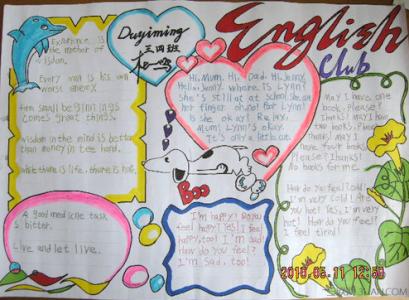 English
Club
Duyiming
三四班
Experience is
the mother of
wisdom.
Every man is his own
worst enemy.
From small beginnings
comes great things.
wisdom in the mind is better
than money in the hand.
while there is life, there is hope.
A good medicine tasks
bitter.
Live and let live.
Hi, Mum. Hi, Dad. Hi, Jenny.
Hello, Jenny. Where is Lynn?
She's still at at school. She cut
her finger. Oh no! Poor Lynn!
Is she okay? Relax,
Mum! Lynn's okay.
It's only a little cut.
Boo
I'm happy! Do you
feel happy? Yes! I feel
happy, too! I'm sad!
How do you feel?
I'm sad, too!
May I have one
book, Please?
Thanks! may I have
two books, Please?
Thanks! may I
have four books,
Please? Thanks!
No books for me.
How do you feel? Cold!
I'm very cold! Are
you hot? Yes, I'm very
hot! How do you feel?
I feel tired!
2010.06.11 12:50